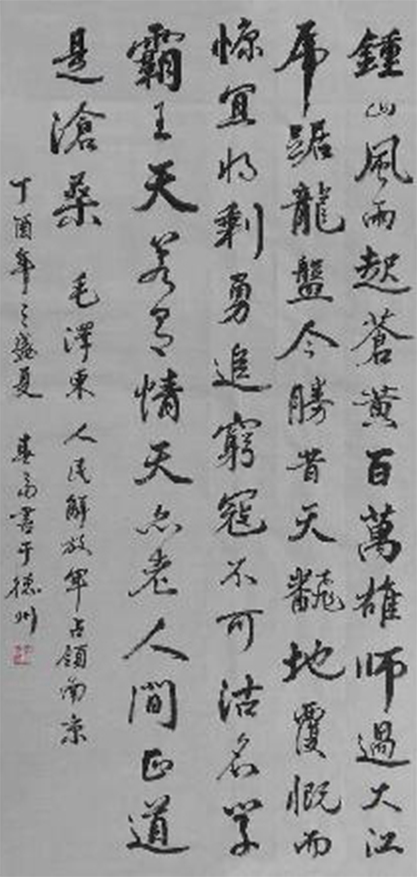 鍾山風雨起蒼黄百萬雄師過大江
虎踞龍盤今勝昔天翻地覆慨而
慷宜将剩勇追窮寇不可沽名学
霸王天若有情天亦老人間正道
是滄桑 毛澤東人民解放軍占領南京
丁酉年之盛夏 書于德州